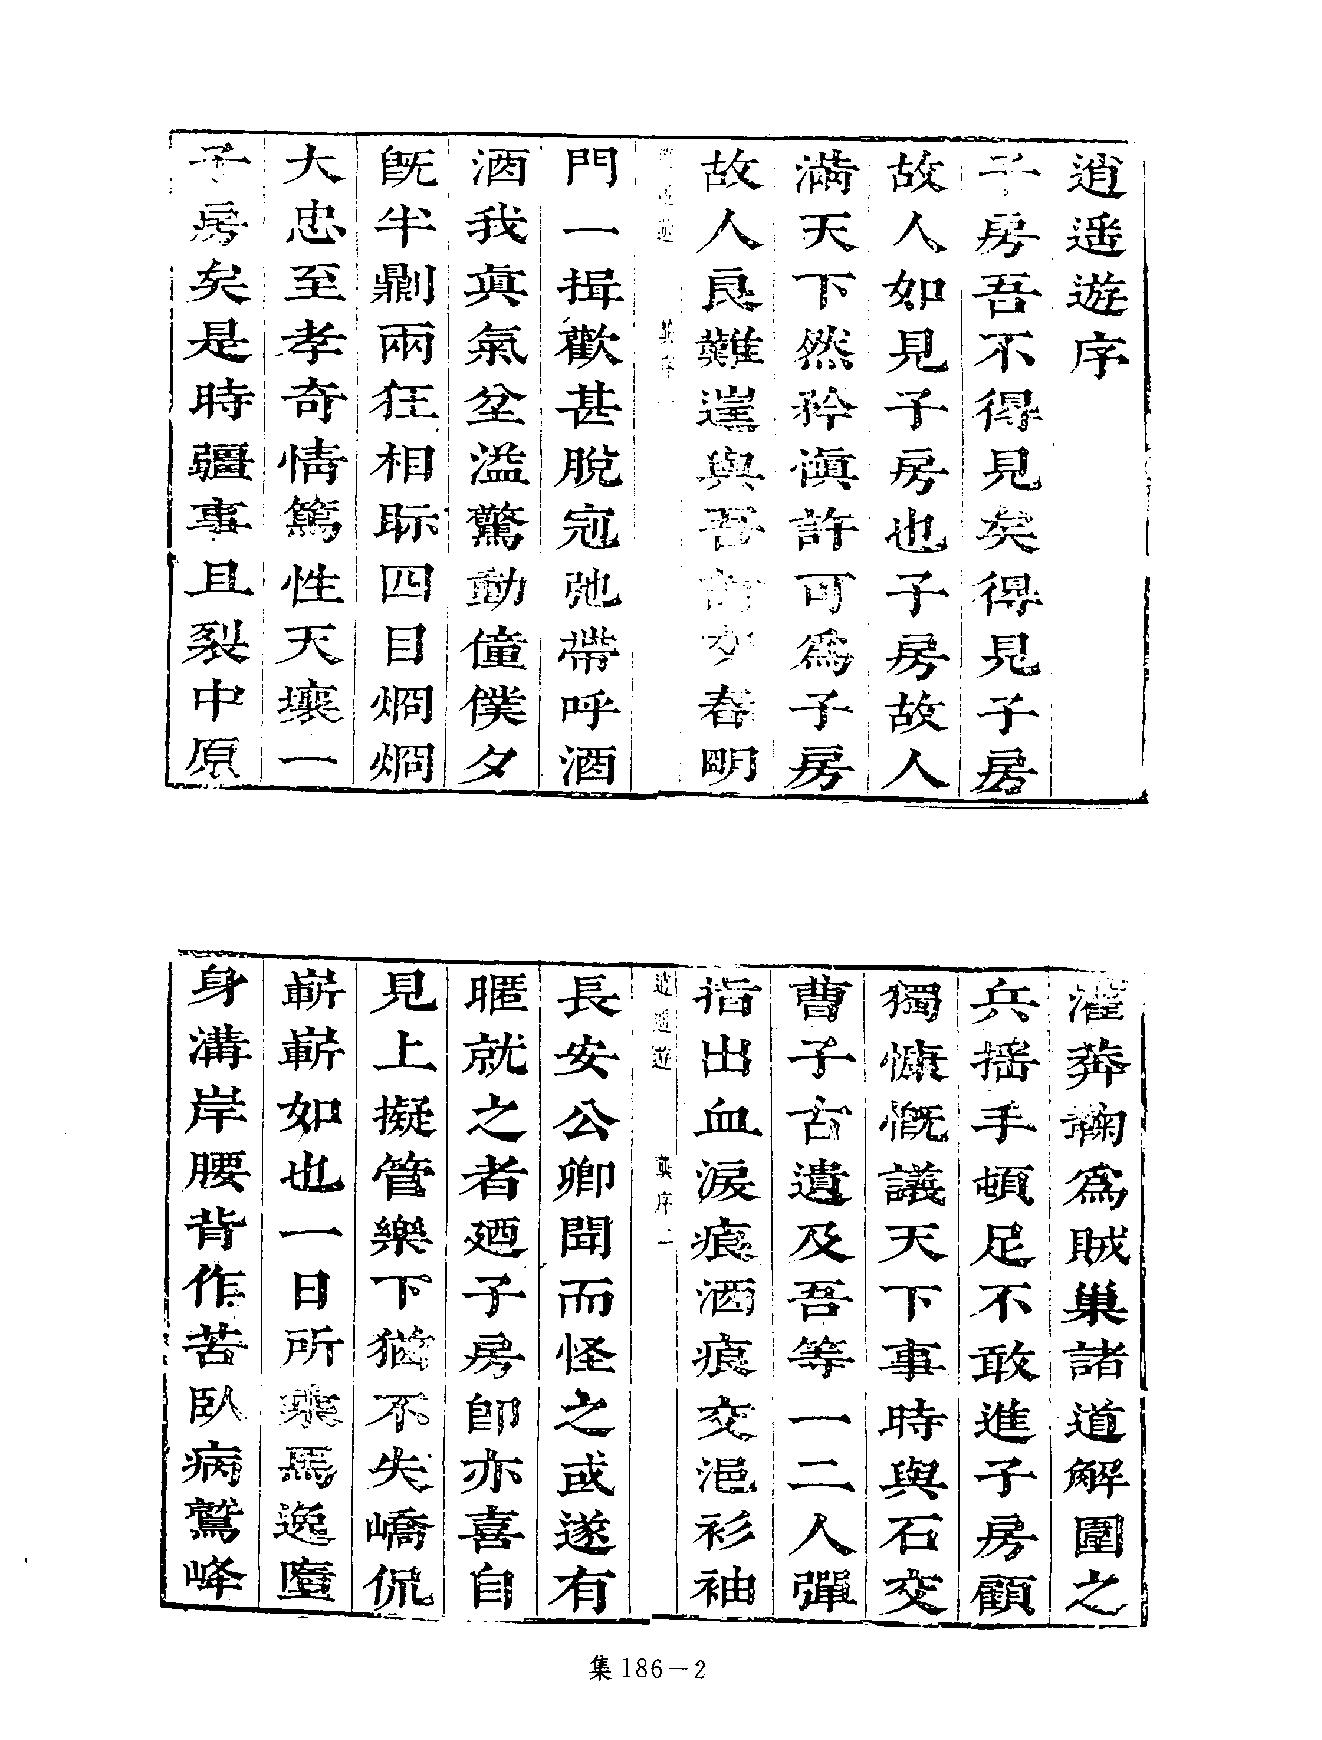 逍遥遊序
子房吾不得見矣得見子房
故人如見子房也子房故人
滿天下然矜愼許可爲子房
故人良難遑與吾 交春明
門一揖歡甚脫冠弛帶呼酒
酒我眞氣坌溢驚動僮僕夕
旣半剿兩狂相眎四目烱烱
大忠至孝奇情篤性天壤一
子房矣是時疆事且裂中原
灌莽鞠爲賊巢諸道解圍之
兵揺手頓足不敢進子房顧
獨慷慨議天下事時與石交
曹子古遺及吾等一二人彈
指出血淚痕酒痕交浥衫袖
逍遥遊 龔序 二
長安公卿聞而怪之或遂有
暱就之者廼子房卽亦喜自
見上擬管樂下猶不失嶠侃
嶄嶄如也一日所乘馬逸墮
身溝岸腰背作苦臥病鷲峰
集186－2